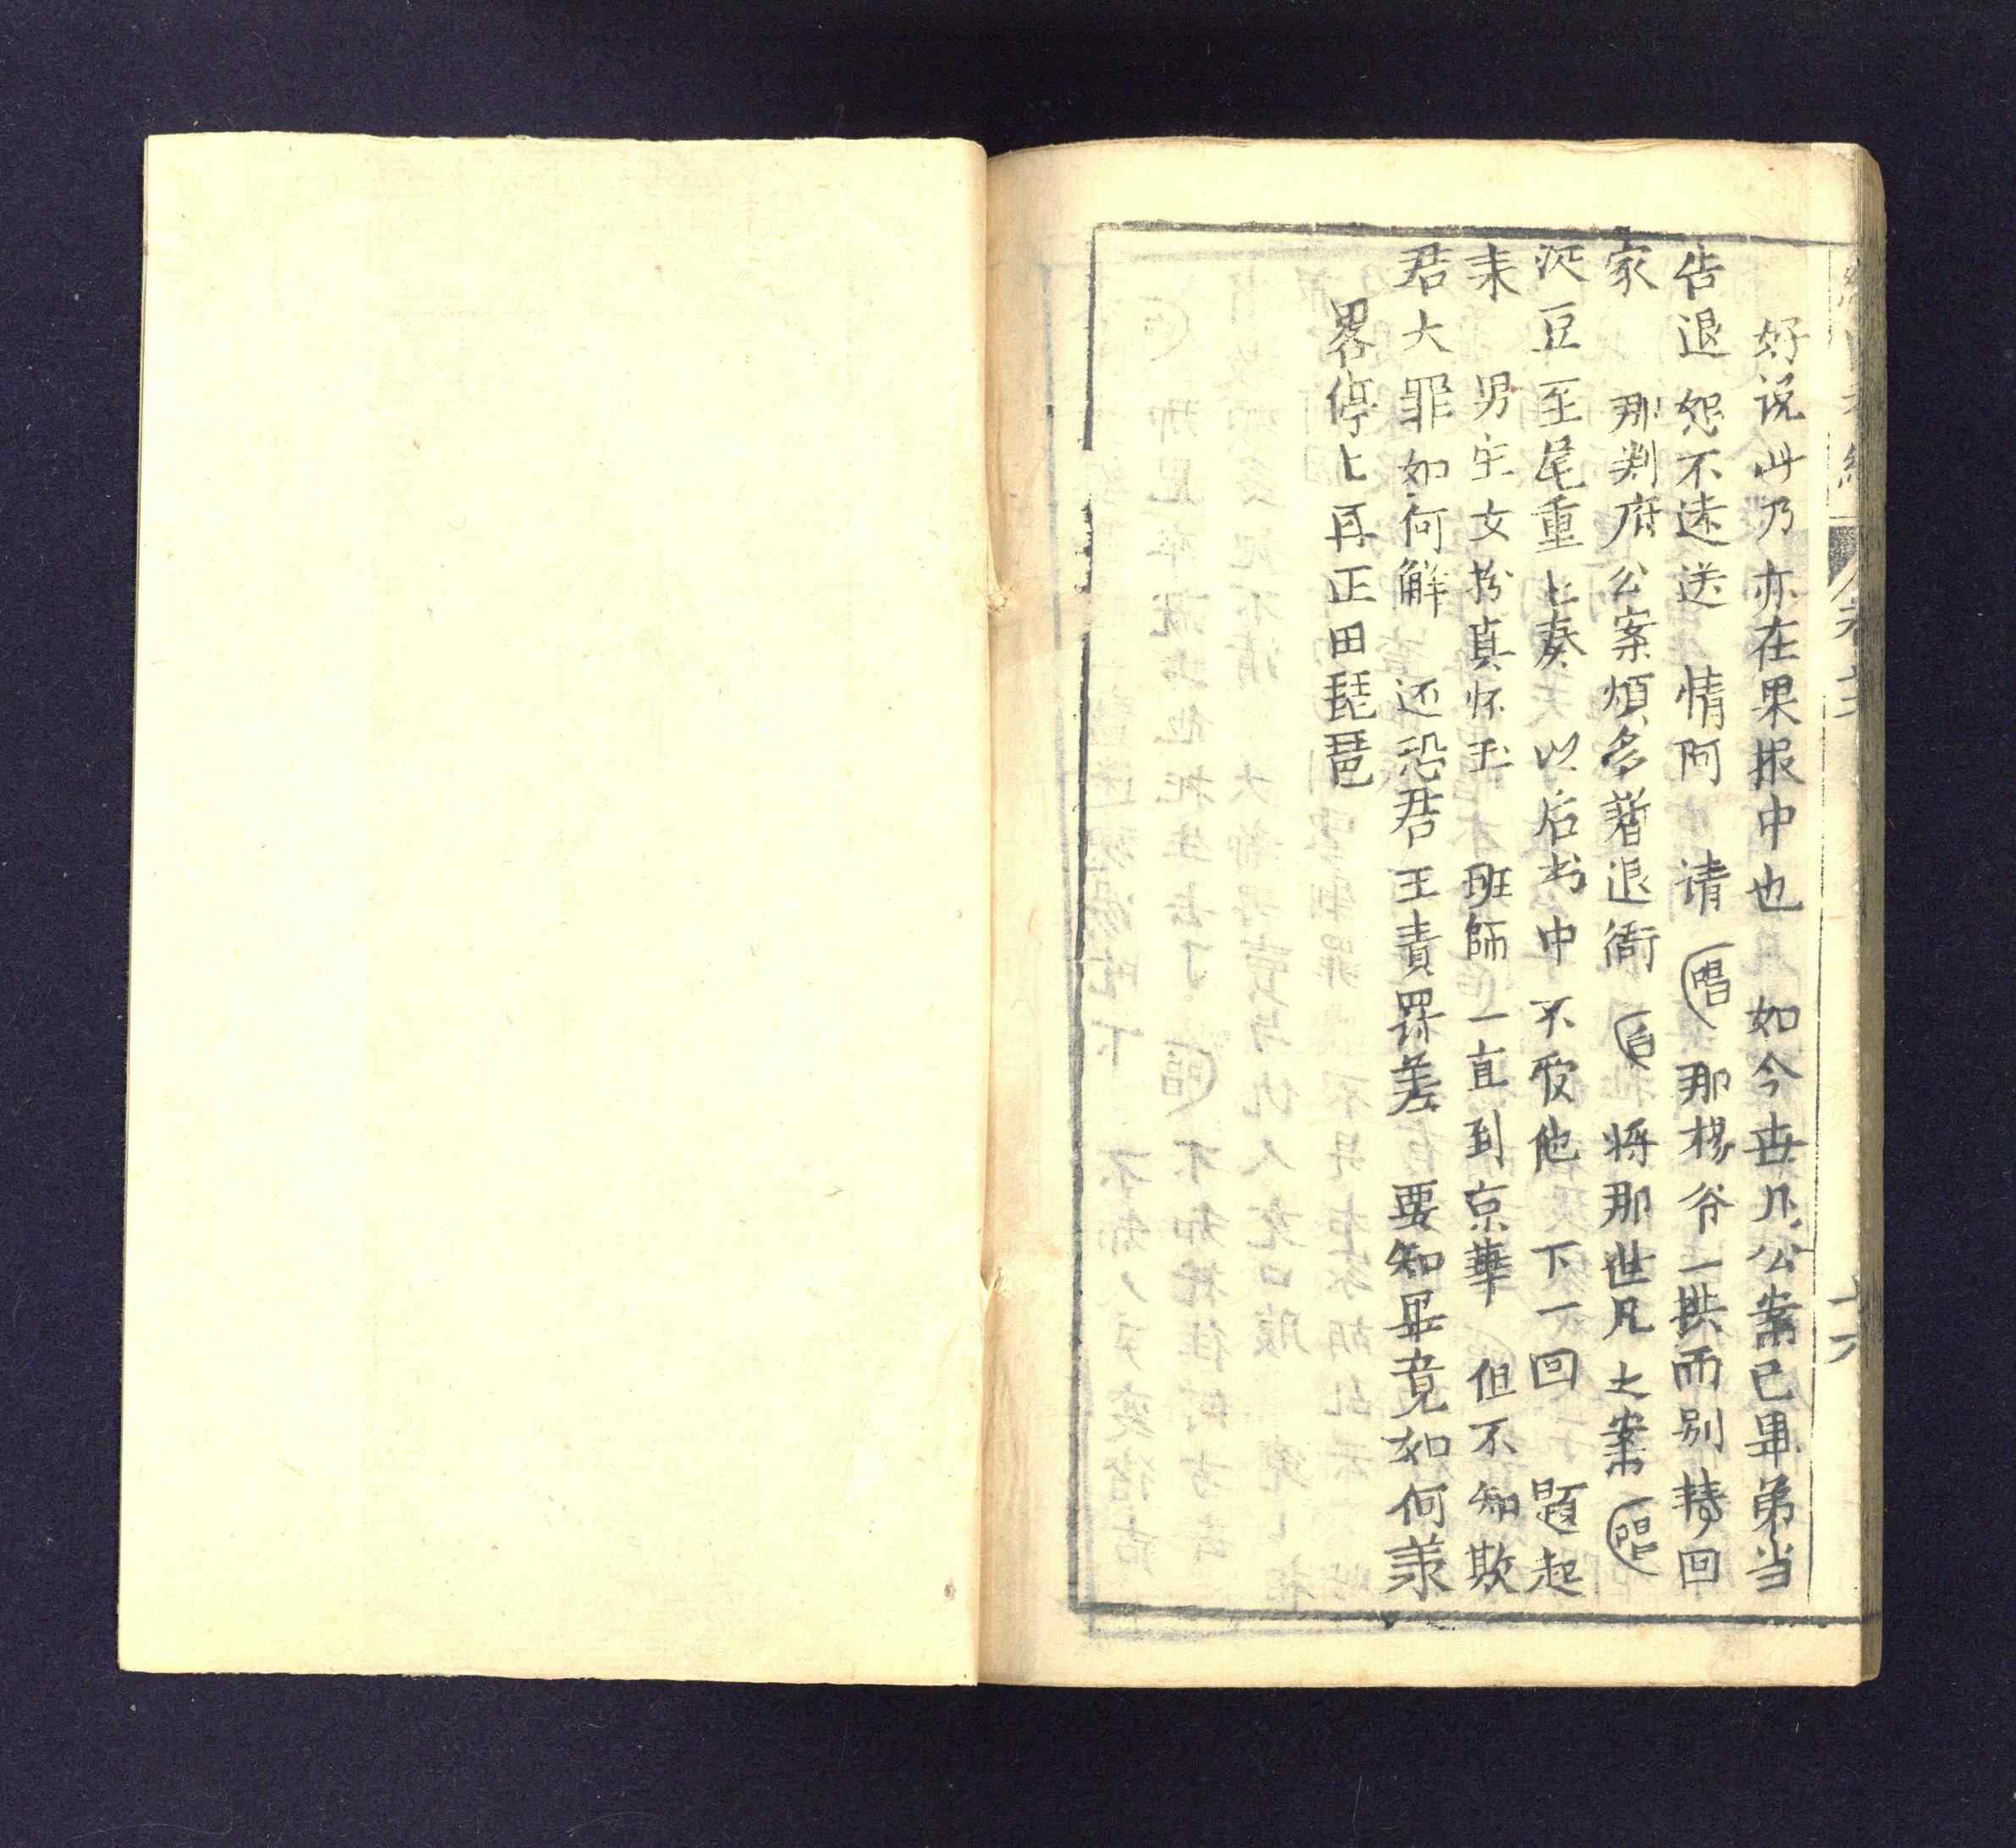 好说此乃亦在果报中也 如今世凡公案已畢弟当
告退 恕不遠送 情阿 请 唱 那楊爷一拱而别轉回
家 那判府公案煩多暫退衙 白 将那世凡之案 唱
從豆至尾重上奏 以后书中不受他 下一回 題起
来 男生女扮真怀玉 班師一直到京華 但不知欺
君大罪如何觧 还恐君王責罪差 要知畢竟如何
畧停上再正田琵琶
卷六
十六